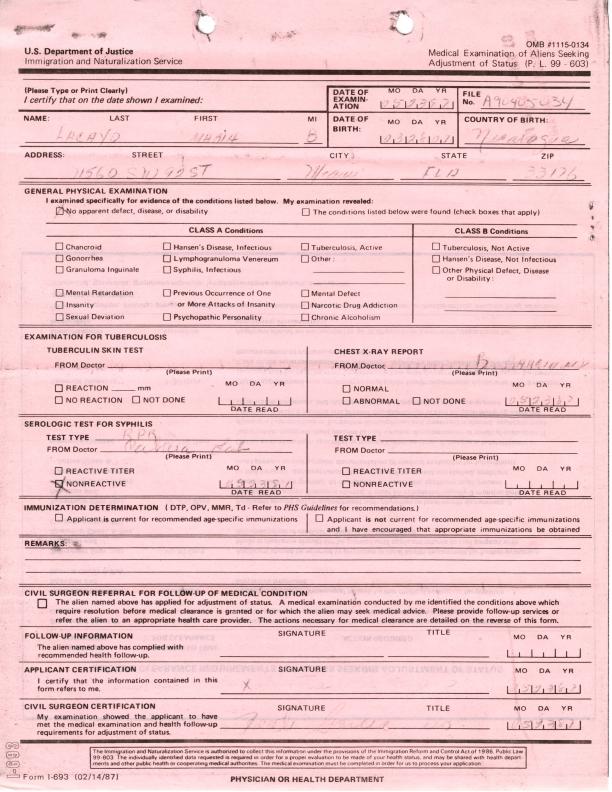 OMB #1115-0134
U.S. Department of Justice
Immigration and Naturalization Service
Medical Examination of Aliens Seeking
Adjustment of Status (P. L. 99 - 603)
(Please Type or Print Clearly)
I certify that on the date shown I examined:
DATE OF EXAMIN- ATION
MO DA YR
052387
FILE No. A90405034
NAME: LAST FIRST MI
LACAYO MARIA B
DATE OF BIRTH:
MO DA YR
COUNTRY OF BIRTH:
Nicaragua
ADDRESS: STREET CITY STATE ZIP
11560 SW 92 ST Miami FLA 33176
GENERAL PHYSICAL EXAMINATION
I examined specifically for evidence of the conditions listed below. My examination revealed:
No apparent defect, disease, or disability
The conditions listed below were found (check boxes that apply)
CLASS A Conditions
CLASS B Conditions
Chancroid
Hansen's Disease, Infectious
Tuberculosis, Active
Tuberculosis, Not Active
Gonorrhea
Lymphogranuloma Venereum
Other:
Hansen's Disease, Not Infectious
Granuloma Inguinale
Syphilis, Infectious
Other Physical Defect, Disease
or Disability:
Mental Retardation
Previous Occurrence of One
Mental Defect
Insanity
or More Attacks of Insanity
Narcotic Drug Addiction
Sexual Deviation
Psychopathic Personality
Chronic Alcoholism
EXAMINATION FOR TUBERCULOSIS
TUBERCULIN SKIN TEST
CHEST X-RAY REPORT
FROM Doctor
(Please Print)
FROM Doctor
(Please Print)
REACTION mm
MO DA YR
NORMAL
MO DA YR
NO REACTION NOT DONE
DATE READ
ABNORMAL NOT DONE
052387
DATE READ
SEROLOGIC TEST FOR SYPHILIS
TEST TYPE RPR
TEST TYPE
FROM Doctor
(Please Print)
FROM Doctor
(Please Print)
REACTIVE TITER
MO DA YR
REACTIVE TITER
MO DA YR
NONREACTIVE
052387
DATE READ
NONREACTIVE
DATE READ
IMMUNIZATION DETERMINATION ( DTP, OPV, MMR, Td - Refer to PHS Guidelines for recommendations.)
Applicant is current for recommended age-specific immunizations
Applicant is not current for recommended age-specific immunizations
and I have encouraged that appropriate immunizations be obtained
REMARKS:
CIVIL SURGEON REFERRAL FOR FOLLOW-UP OF MEDICAL CONDITION
The alien named above has applied for adjustment of status. A medical examination conducted by me identified the conditions above which
require resolution before medical clearance is granted or for which the alien may seek medical advice. Please provide follow-up services or
refer the alien to an appropriate health care provider. The actions necessary for medical clearance are detailed on the reverse of this form.
FOLLOW-UP INFORMATION
SIGNATURE TITLE MO DA YR
The alien named above has complied with
recommended health follow-up.
APPLICANT CERTIFICATION
SIGNATURE TITLE MO DA YR
I certify that the information contained in this
form refers to me.
X
052387
CIVIL SURGEON CERTIFICATION
SIGNATURE TITLE MO DA YR
My examination showed the applicant to have
met the medical examination and health follow-up
requirements for adjustment of status.
052387
The Immigration and Naturalization Service is authorized to collect this information under the provisions of the Immigration Reform and Control Act of 1986, Public Law
99-603. The individually identified data requested is required in order for a proper evaluation to be made of your health status, and may be shared with health depart-
ments and other public health or cooperating medical authorities. The medical examination must be completed in order for us to process your application.
Form I-693 (02/14/87)
PHYSICIAN OR HEALTH DEPARTMENT